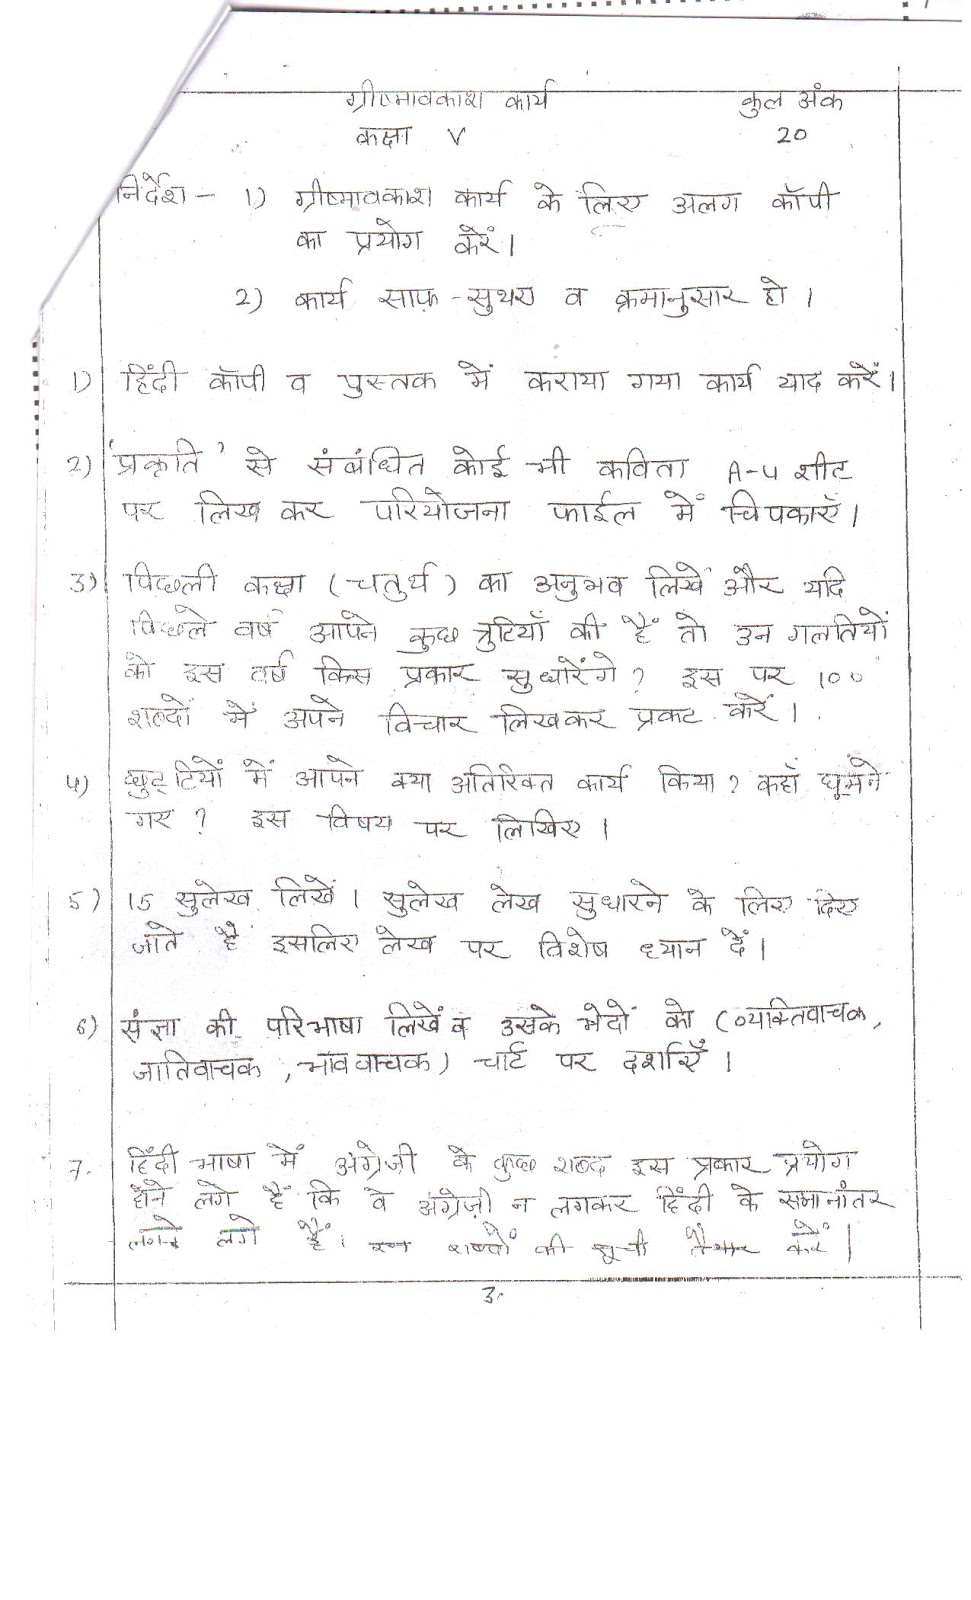 ग्रीष्मावकाश कार्य कुल अंक
कक्षा V 20
निर्देश - 1) ग्रीष्मावकाश कार्य के लिए अलग कॉपी
का प्रयोग करें।
2) कार्य साफ़ - सुथरा व क्रमानुसार हो ।
1) हिंदी कॉपी व पुस्तक में कराया गया कार्य याद करें।
2) 'प्रकृति' से संबंधित कोई भी कविता A-4 शीट
पर लिख कर परियोजना फाईल में चिपकाएँ।
3) पिछली कक्षा (चतुर्थ) का अनुभव लिखें और यदि
पिछले वर्ष आपने कुछ त्रुटियाँ की हैं तो उन गलतियों
को इस वर्ष किस प्रकार सुधारेंगे? इस पर 100
शब्दों में अपने विचार लिखकर प्रकट करें।
4) छुट्टियों में आपने क्या अतिरिक्त कार्य किया? कहाँ घूमने
गए? इस विषय पर लिखिए ।
5) 15 सुलेख लिखें। सुलेख लेख सुधारने के लिए दिए
जाते हैं इसलिए लेख पर विशेष ध्यान दें।
6) संज्ञा की परिभाषा लिखें व उसके भेदों को (व्यक्तिवाचक,
जातिवाचक, भाववाचक) चार्ट पर दर्शाएँ ।
7. हिंदी भाषा में अंग्रेजी के कुछ शब्द इस प्रकार प्रयोग
होने लगे हैं कि वे अंग्रेज़ी न लगकर हिंदी के समानांतर
लगने लगे हैं। इन शब्दों की सूची तैयार करें।
3.